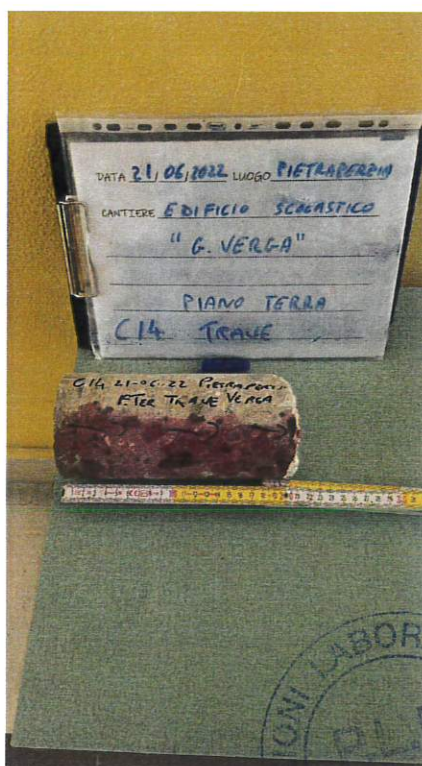 DATA 21/06/2022 LUOGO PIETRAPERZIA
CANTIERE EDIFICIO SCOLASTICO
"G. VERGA"
PIANO TERRA
C14 TRAVE
C14 21-06-22 PIETRAPERZIA
P.TER TRAVE VERGA
IONI LABOR
P.L.